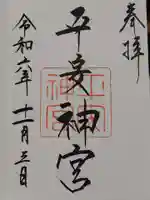 奉拝
平安神宮
令和六年十一月三日